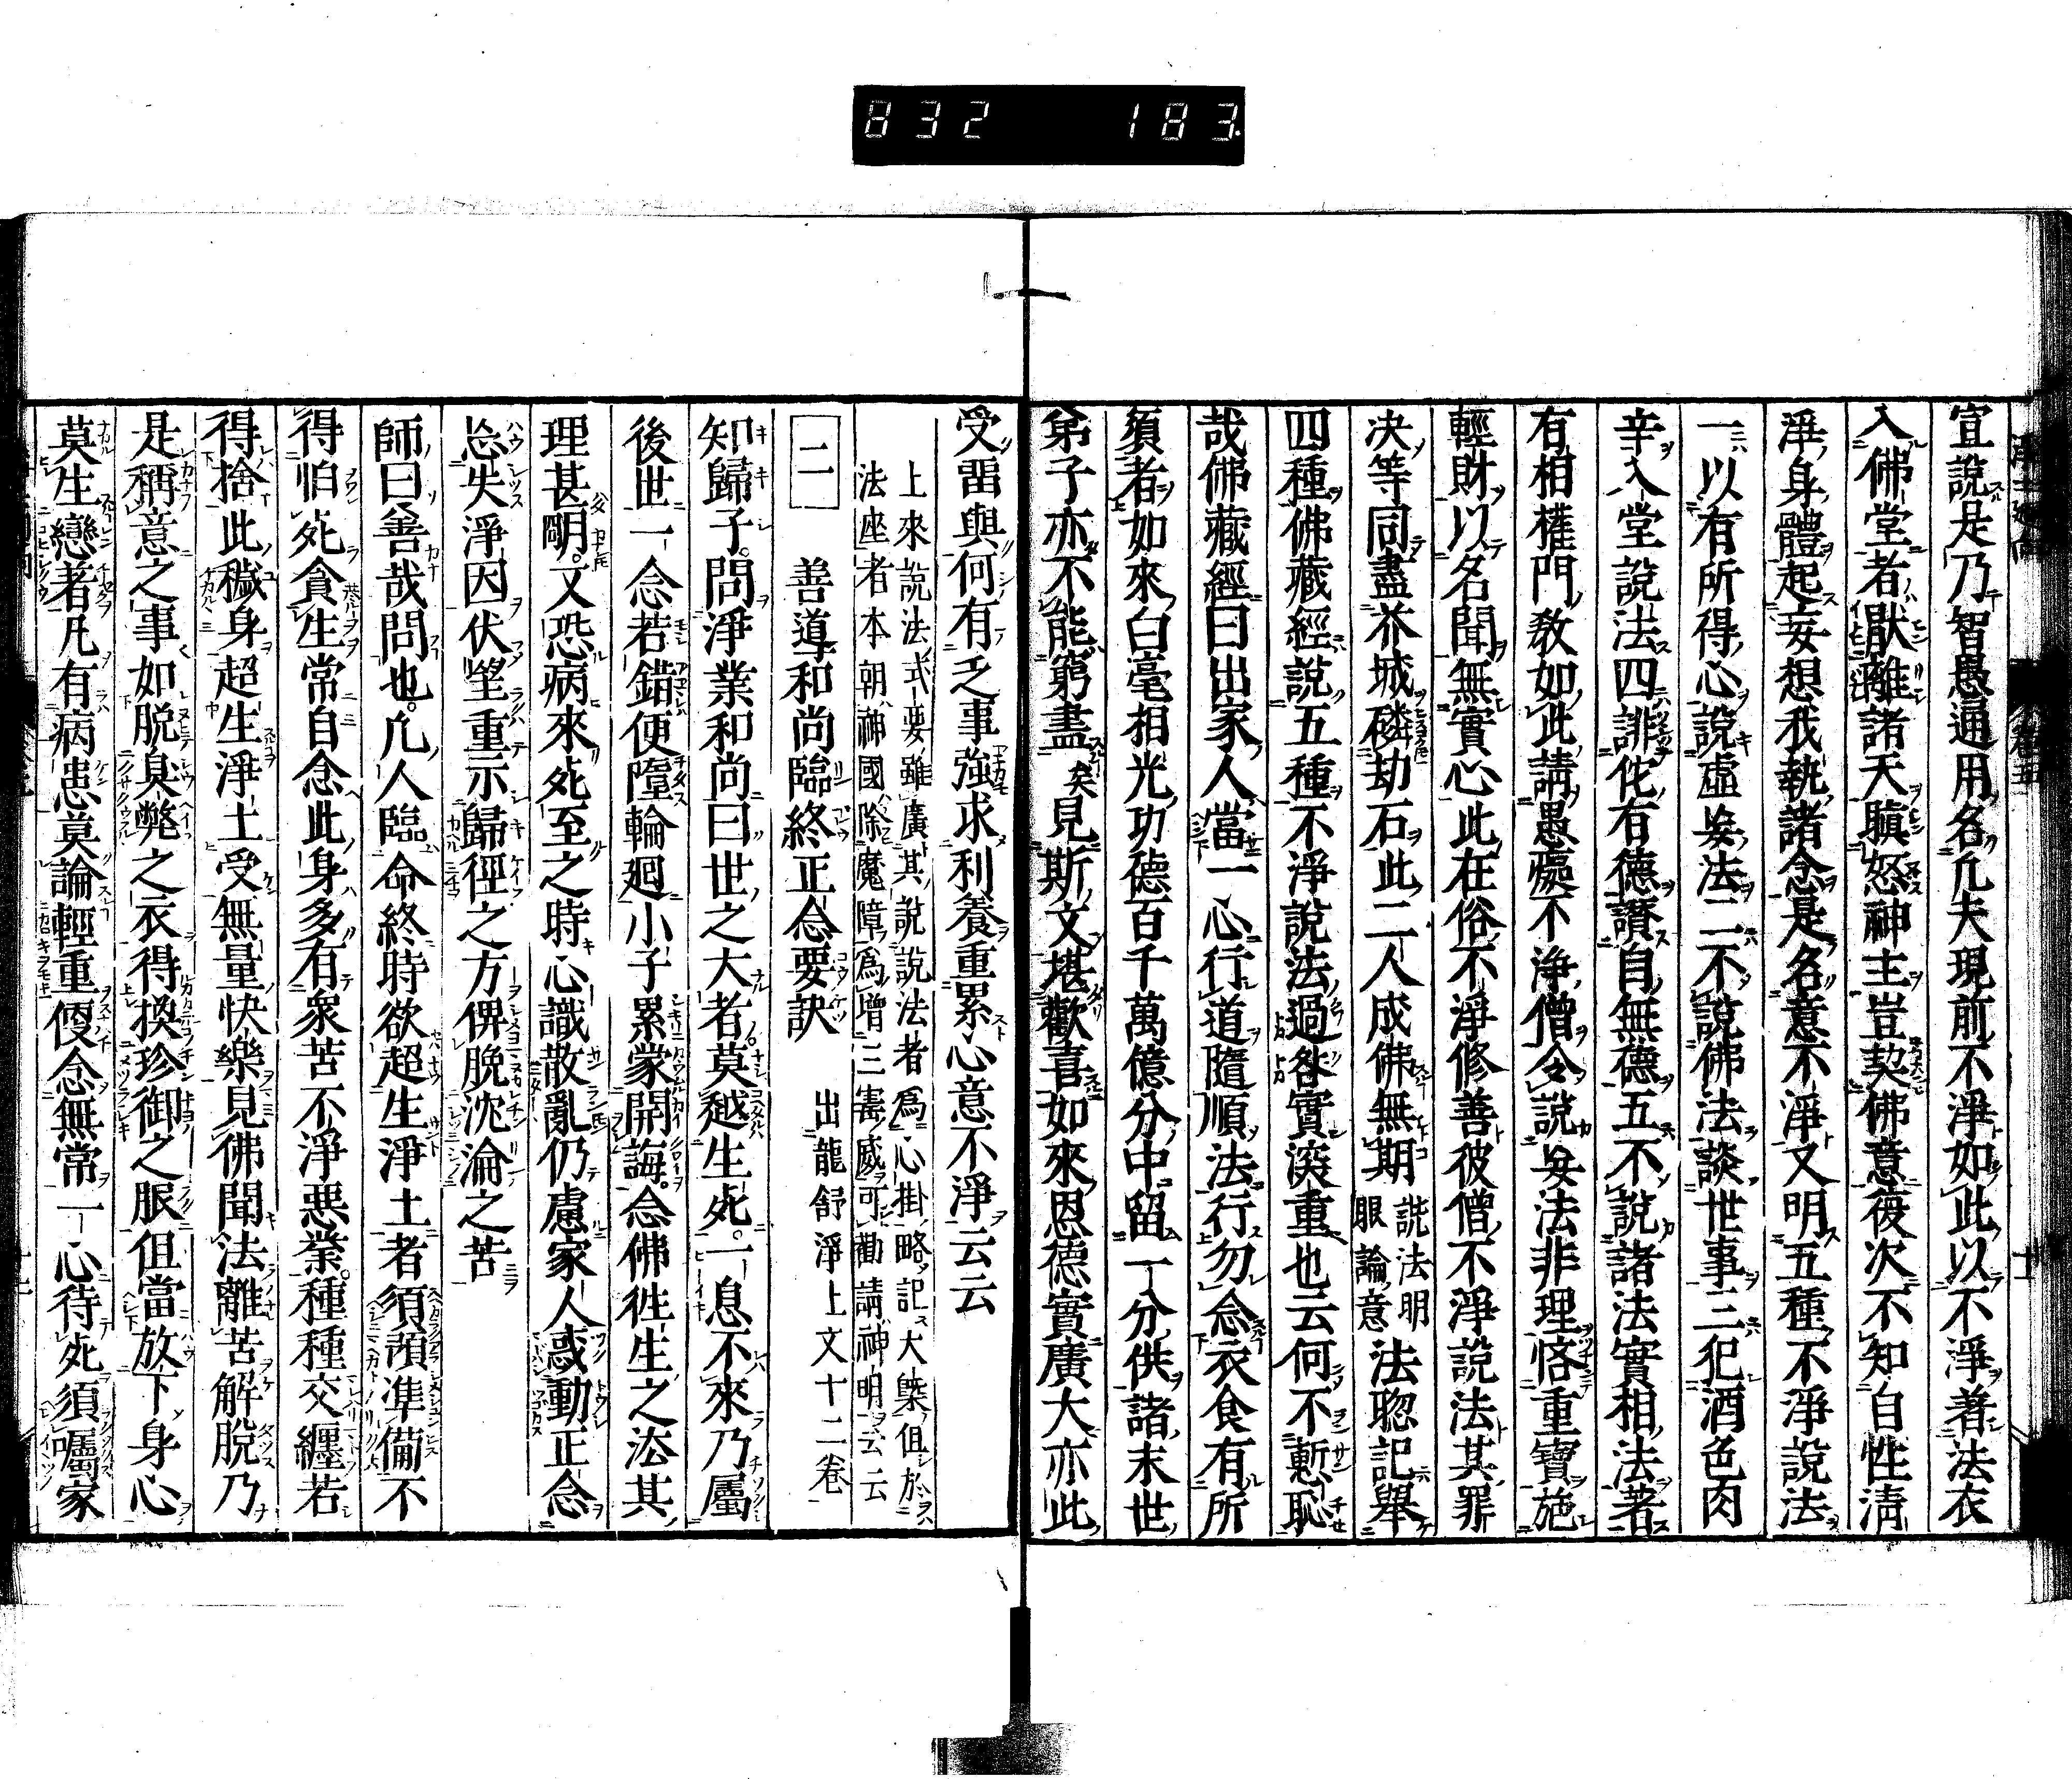 832 183
宜說是乃智愚通用名凢夫現前不淨如此以不淨著法衣
入佛堂者厭離諸天瞋怒神主豈契佛意復次不知自性清
淨身體起妄想我執諸念是名意不淨又明五種不淨說法
一以有所得心說虛妄法二不說佛法談世事三犯酒色肉
辛入堂說法四誹佗有德讚自無德五不說諸法實相法著
有相權門教如此請愚癡不浄僧令說妄法非理悋重寶施
輕財以名聞無實心此在俗不淨修善彼僧不淨說法其罪
决等同盡芥城磷劫石此二人成佛無期 說法明眼論意 法聡記舉
四種佛藏經說五種不淨說法過咎實深重也云何不慙恥
哉佛藏經曰出家人當一心行道隨順法行勿念衣食有所
須者如來白毫相光功德百千萬億分中留一分供諸末世
弟子亦不能窮盡矣見斯文堪歡喜如來恩德實廣大亦此
受畱與何有乏事強求利養重累心意不淨云云
上來說法式要雖廣其說說法者爲心掛略記大槩但於
法座者本朝神國除魔障爲增三寚威可勸請神明云云
二 善導和尚臨終正念要訣 出龍舒淨土文十二卷
知歸子問淨業和尚曰世之大者莫越生死一息不來乃屬
後世一念若錯便墮輪廻小子累蒙開誨念佛徃生之法其
理甚明又恐病來死至之時心識散亂仍慮家人惑動正念
忘失淨因伏望重示歸徑之方俾脫沈淪之苦
師曰善哉問也凢人臨命終時欲超生淨土者須預準備不
得怕死貪生常自念此身多有衆苦不淨悪業種種交纏若
得捨此穢身超生淨土受無量快樂見佛聞法離苦解脫乃
是稱意之事如脫臭弊之衣得換珍御之服但當放下身心
莫生戀著凡有病患莫論輕重便念無常一心待死須囑家